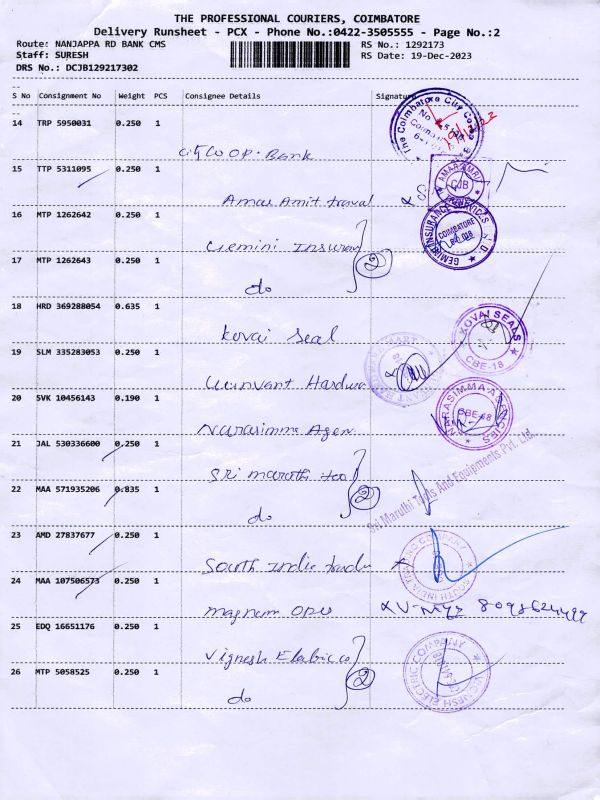 THE PROFESSIONAL COURIERS, COIMBATORE
Delivery Runsheet - PCX - Phone No.:0422-3505555 - Page No.:2
Route: NANJAPPA RD BANK CMS
RS No.: 1292173
Staff: SURESH
RS Date: 19-Dec-2023
DRS No.: DCJB129217302
S No Consignment No Weight PCS Consignee Details Signature
14 TRP 5950031 0.250 1
City Co Op. Bank
The Coimbatore City Co
15 TTP 5311095 0.250 1
Amar Amit Traval
AMAR AMRIT
CJB
16 MTP 1262642 0.250 1
Gemini Insuran
2
GEMINI INSURANCE SERVICES
COIMBATORE
17 MTP 1262643 0.250 1
do
18 HRD 369288054 0.635 1
Kovai Seal
KOVAI SEALS
CBE-18
19 SLM 335283053 0.250 1
Hardwa
20 SVK 10456143 0.190 1
Narasimma Agen
NARASIMMA AGENCIES
CBE-18
21 JAL 530336600 0.250 1
Sri Maruthi Too
2
Sri Maruthi Tools And Equipments Pvt. Ltd.
22 MAA 571935206 0.835 1
do
23 AMD 27837677 0.250 1
South India Tradi
SOUTH INDIA TRADING COMPANY
24 MAA 107506573 0.250 1
Magnum Opus
25 EDQ 16651176 0.250 1
Vignesh Elebric co
2
VIGNESH ELECTRIC COMPANY
26 MTP 5058525 0.250 1
do